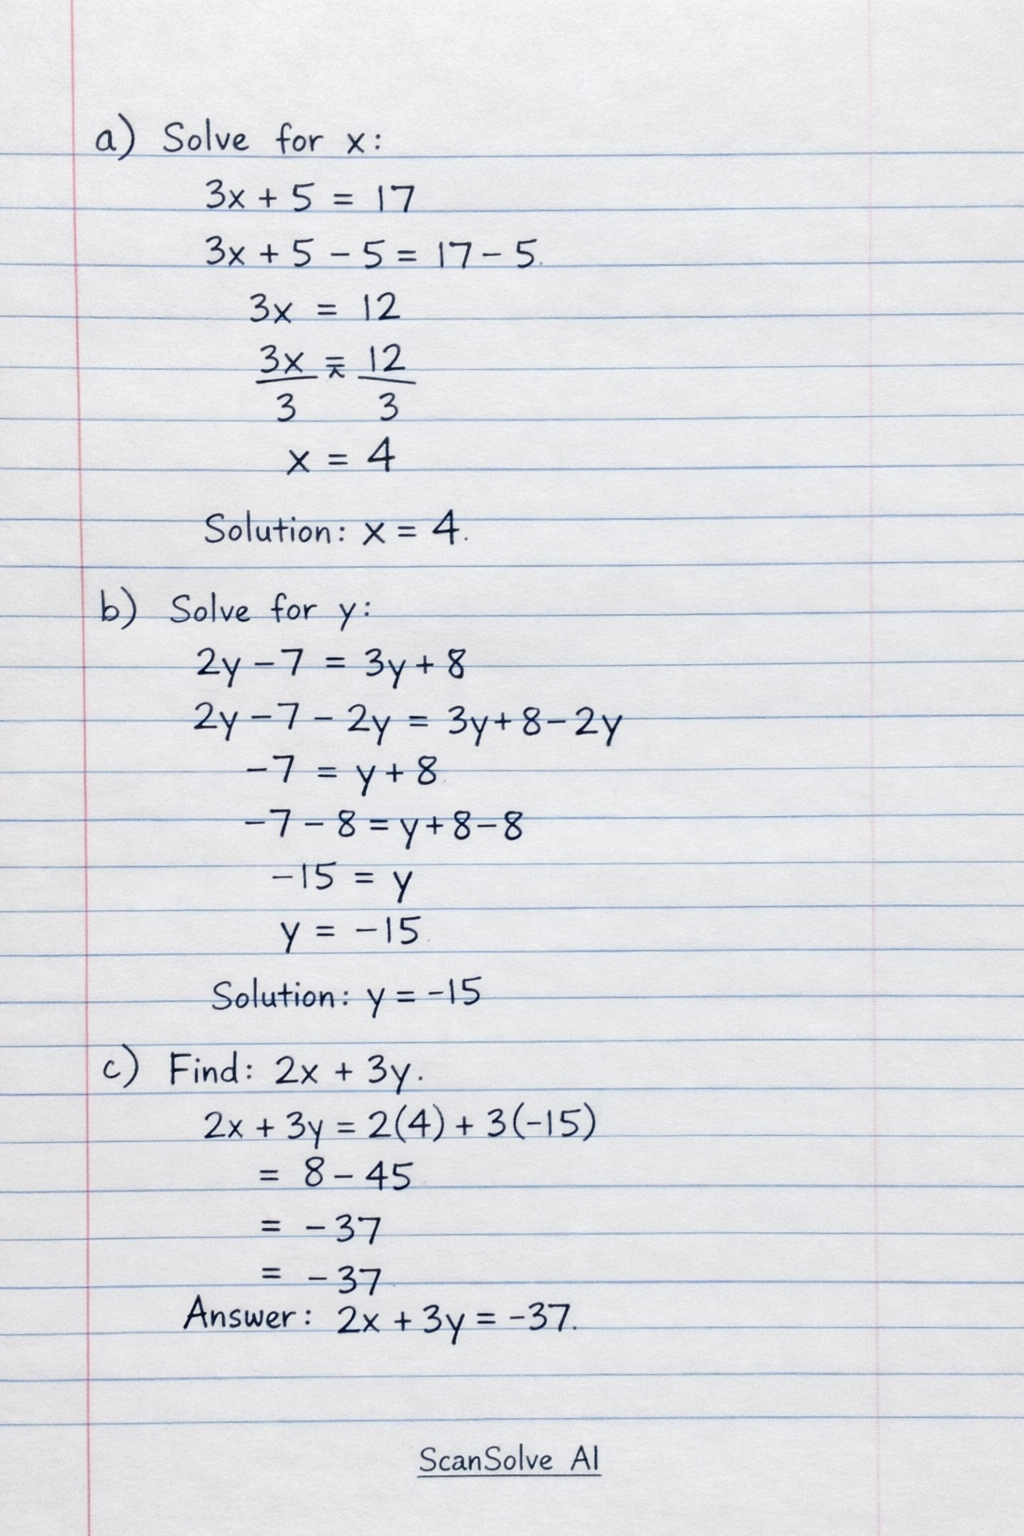 a) Solve for x:
3x + 5 = 17
3x + 5 - 5 = 17 - 5.
3x = 12
3x = 12
3 3
x = 4
Solution: x = 4.
b) Solve for y:
2y - 7 = 3y + 8
2y - 7 - 2y = 3y + 8 - 2y
-7 = y + 8
-7 - 8 = y + 8 - 8
-15 = y
y = -15
Solution: y = -15
c) Find: 2x + 3y.
2x + 3y = 2(4) + 3(-15)
= 8 - 45
= -37
= -37
Answer: 2x + 3y = -37.
ScanSolve AI